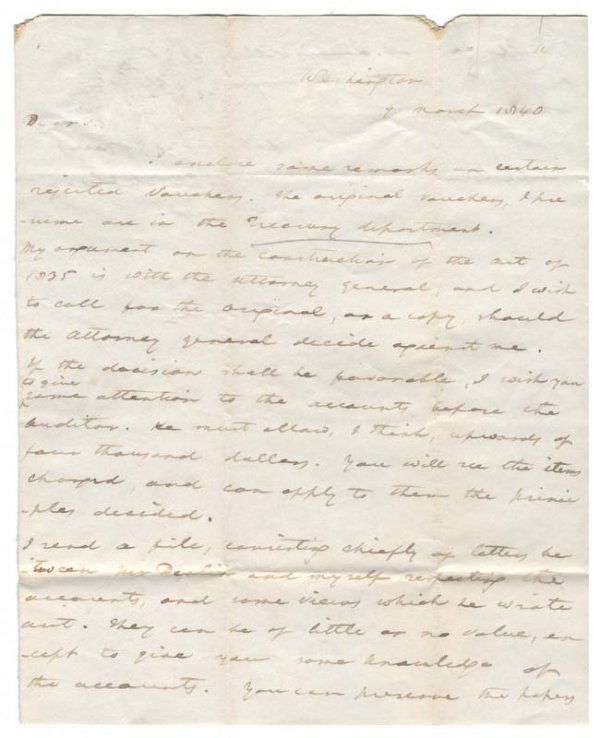 Washington
9 March 1840
Dear
I enclose some remarks on certain
rejected vouchers. The original vouchers, I pre
-sume are in the Treasury department.
My argument on the construction of the act of
1835 is with the attorney general, and I wish
to call for the original, or a copy, should
the attorney general decide against me.
If the decision shall be favorable, I wish you
to give
some attention to the accounts before the
auditor. He must allow, I think, upwards of
four thousand dollars. You will see the items
charged, and can apply to them the princi
-ples decided.
I send a file, consisting chiefly of letters be
-tween Mr and myself respecting the
accounts, and some views which he wrote
out. They can be of little or no value, ex
-cept to give you some knowledge of
the accounts. You can preserve the papers